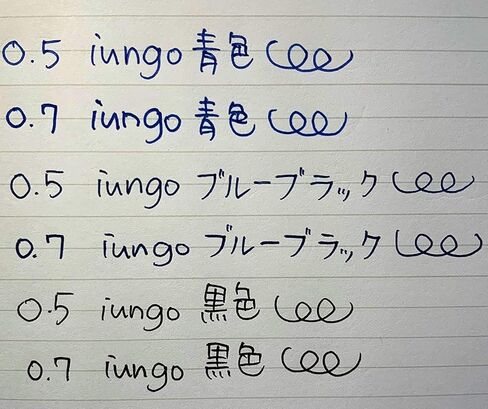 0.5 iungo 青色
0.7 iungo 青色
0.5 iungo ブルーブラック
0.7 iungo ブルーブラック
0.5 iungo 黒色
0.7 iungo 黒色